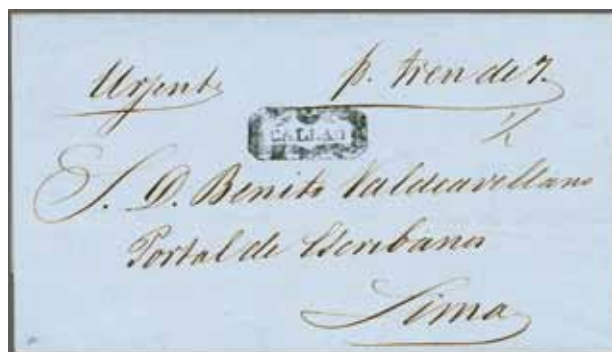 Urjente p. tren de 7.
CALLAO
1/2
S. D. Benito Valdeavellano
Portal de Escribanos
Lima